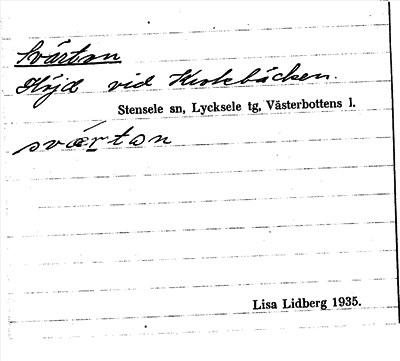 Svärton
Höjd vid Kvokbäcken.
Stensele sn, Lycksele tg, Västerbottens l.
sværton
Lisa Lidberg 1935.